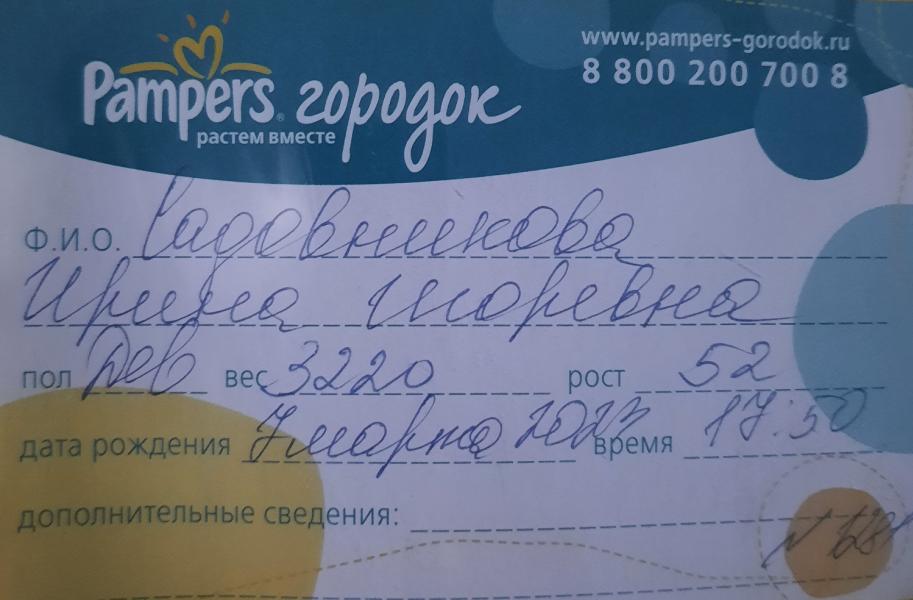 www.pampers-gorodok.ru
8 800 200 700 8
Pampers® городок
растем вместе
Ф.И.О. Садовникова
Ирина Игоревна
пол Дев вес 3220 рост 52
дата рождения 7 марта время 17:50
дополнительные сведения: